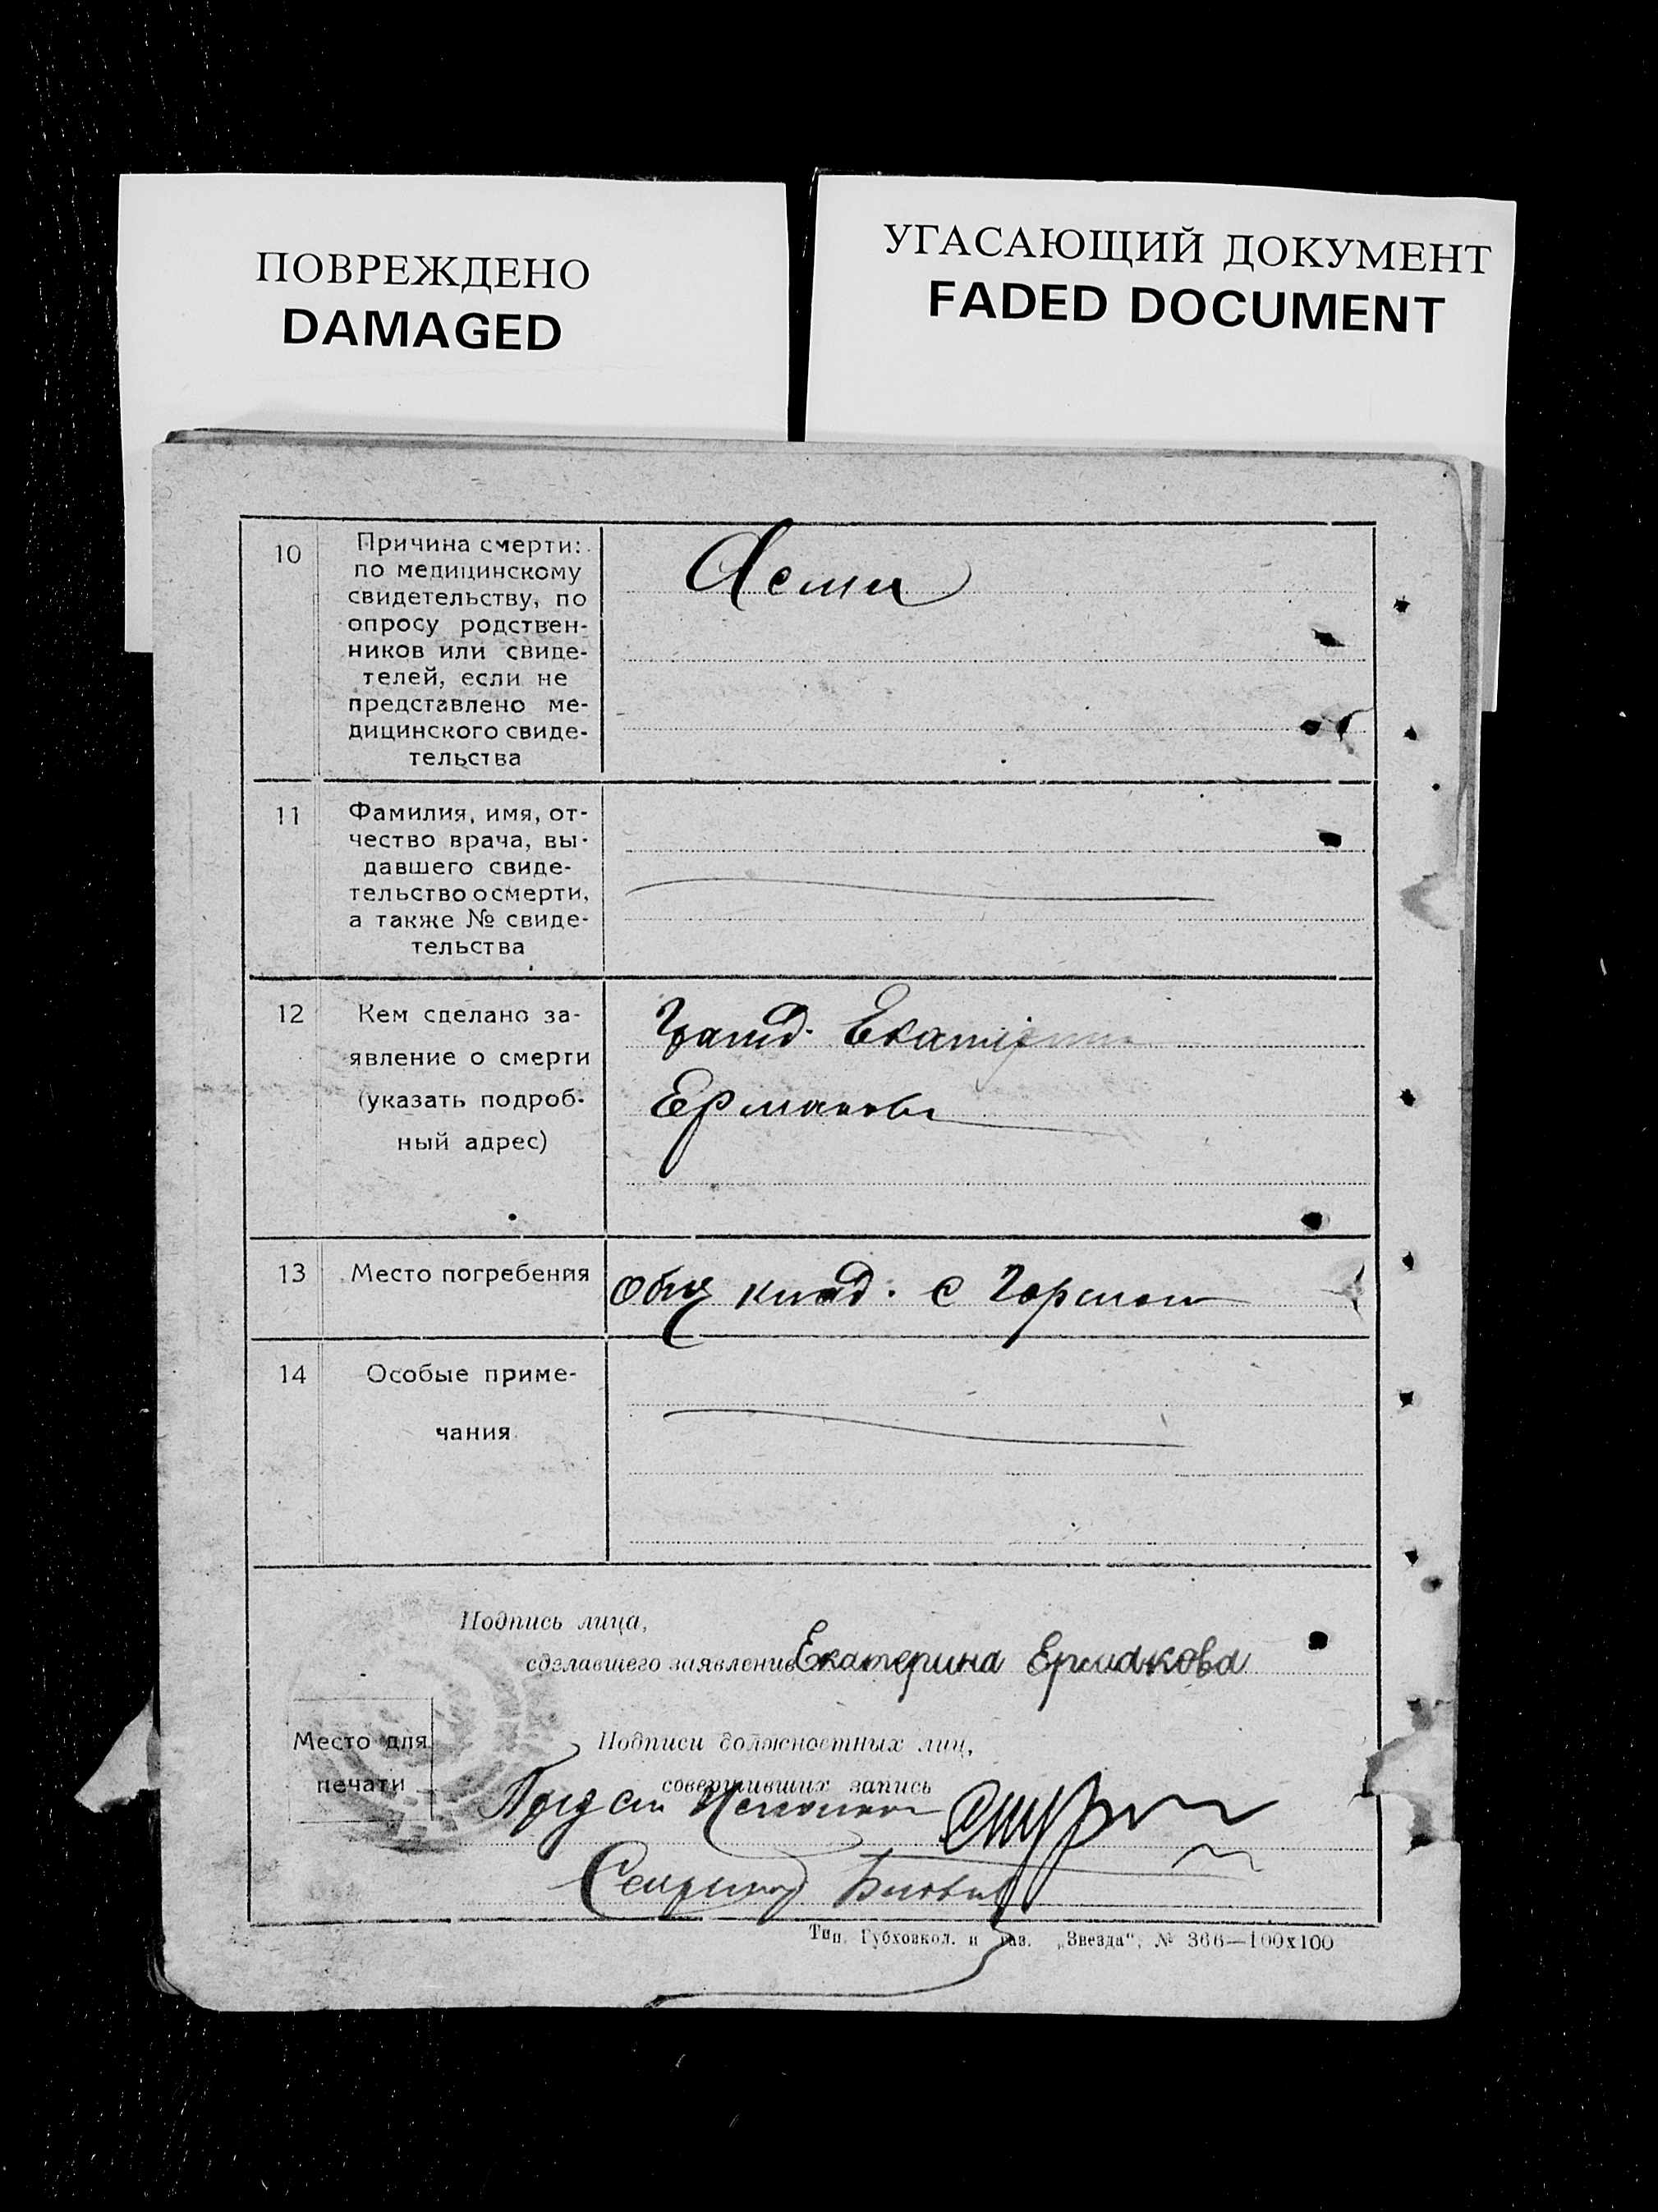 ПОВРЕЖДЕНО
DAMAGED
УГАСАЮЩИЙ ДОКУМЕНТ
FADED DOCUMENT
10
Причина смерти:
по медицинскому
свидетельству, по
опросу родствен-
ников или свиде-
телей, если не
представлено ме-
дицинского свиде-
тельства
11
Фамилия, имя, от-
чество врача, вы-
давшего свиде-
тельство о смерти,
а также № свиде-
тельства
12
Кем сделано за-
явление о смерти
(указать подроб-
ный адрес)
Гражд. Екатерина
Ермакова
13
Место погребения
Общ клад. с
14
Особые приме-
чания
Подпись лица,
сделавшего заявление Екатерина Ермакова
Место для
печати
Подписи должностных лиц,
совершивших запись
Тип. Губховкол. и газ. „Звезда“, № 366—100х100